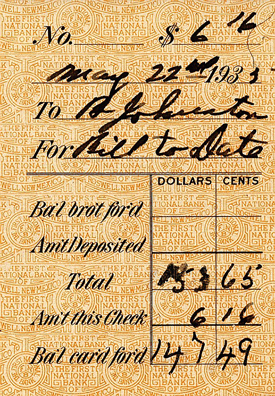 No. $ 6 16
May 22nd 1933
To A Johnston
For Bill to Date
DOLLARS CENTS
Bal brot for'd
Am't Deposited
Total 153 65
Am't this Check 6 16
Bal card for'd 147 49